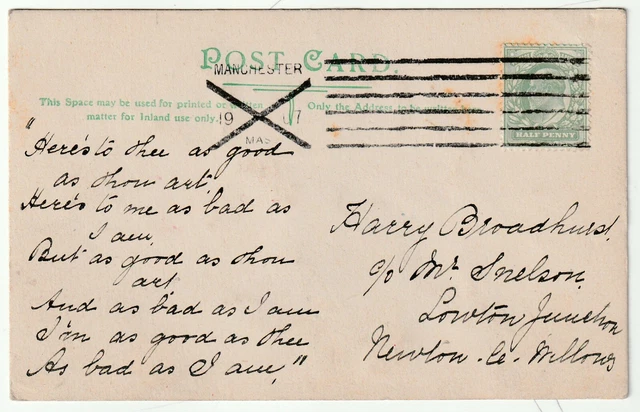 POST CARD.
MANCHESTER
This Space may be used for printed or written
matter for Inland use only.
Only the Address to be written here.
19 07
MA
HALF PENNY
"Here's to thee as good
as thou art,
Here's to me as bad as
I am,
But as good as thou
art
And as bad as I am
I'm as good as thee
As bad as I am,"
Harry Broadhurst.
c/o Mr. Snelson,
Lowton Junction
Newton-le-Willows